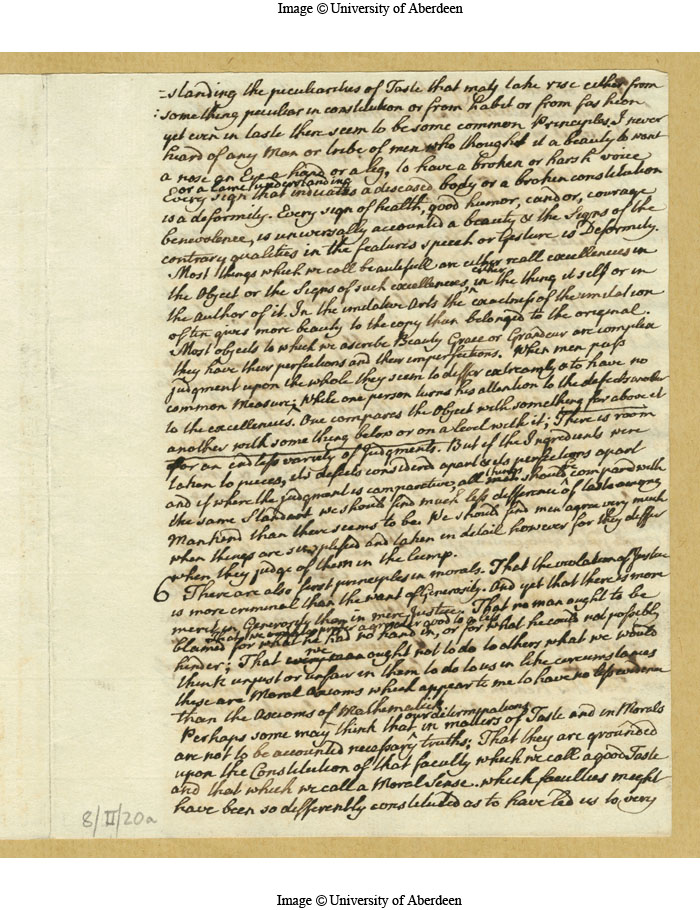 Image © University of Aberdeen
=standing the peculiarities of Taste that may take rise either from
something peculiar in constitution or from habit or from fashion
yet even in taste there seem to be some common Principles. I never
heard of any Man or tribe of men who thought it a beauty to want
a nose an Eye a hand or a leg, to have a broken or harsh voice
or a lame understanding
Every sign that indicates a diseased body or a broken constitution
is a deformity. Every sign of health, good humor, candor, courage
benevolence, is universally accounted a beauty & the Signs of the
contrary qualities in the features speech or Gesture is Deformity.
Most things which we call beautifull are either reall excellences in
the Object or the Signs of such excellences either in the thing it self or in
the Author of it. In the imitative Arts the exactness of the imitation
often gives more beauty to the copy than belonged to the original.
Most objects to which we ascribe Beauty Grace or Grandeur are complex
they have their perfections and their imperfections. When men pass
judgment upon the whole they seem to differ extreamly & to have no
common Measure; While one person turns his attention to the defects
to the excellencies. One compares the Object with something far above it
another with something below or on a level with it; There is room
for an endless variety of Judgments. But if the Ingredients were
taken to pieces, its defects considered apart & its perfections apart
and if where the judgment is comparative, all men should compare with
the same Standart we should find much less difference of taste among
Mankind than there seems to be. We should find men agree very much
when things are simplified and taken in detail however far they differ
when they judge of them in the lump.
6 There are also first principles in morals. That the violation of Justice
is more criminal than the want of Generosity. And yet that there is more
merit in Generosity than in mere Justice. That no man ought to be
That we ought to prefer a greater good to a less
blamed for what he had no hand in, or for what he could not possibly
hinder; That we ought not to do to others what we would
think unjust or unfair in them to do to us in like circumstances
these are Moral Axioms which appear to me to have no less evidence
than the Axioms of Mathematick
Perhaps some may think that our determinations in matters of Taste and in Morals
are not to be accounted necessary truths; That they are grounded
upon the Constitution of that faculty which we call a good Taste
and that which we call a Moral Sense. which faculties might
have been so differently constituted as to have led us to very
8/II/20a
Image © University of Aberdeen